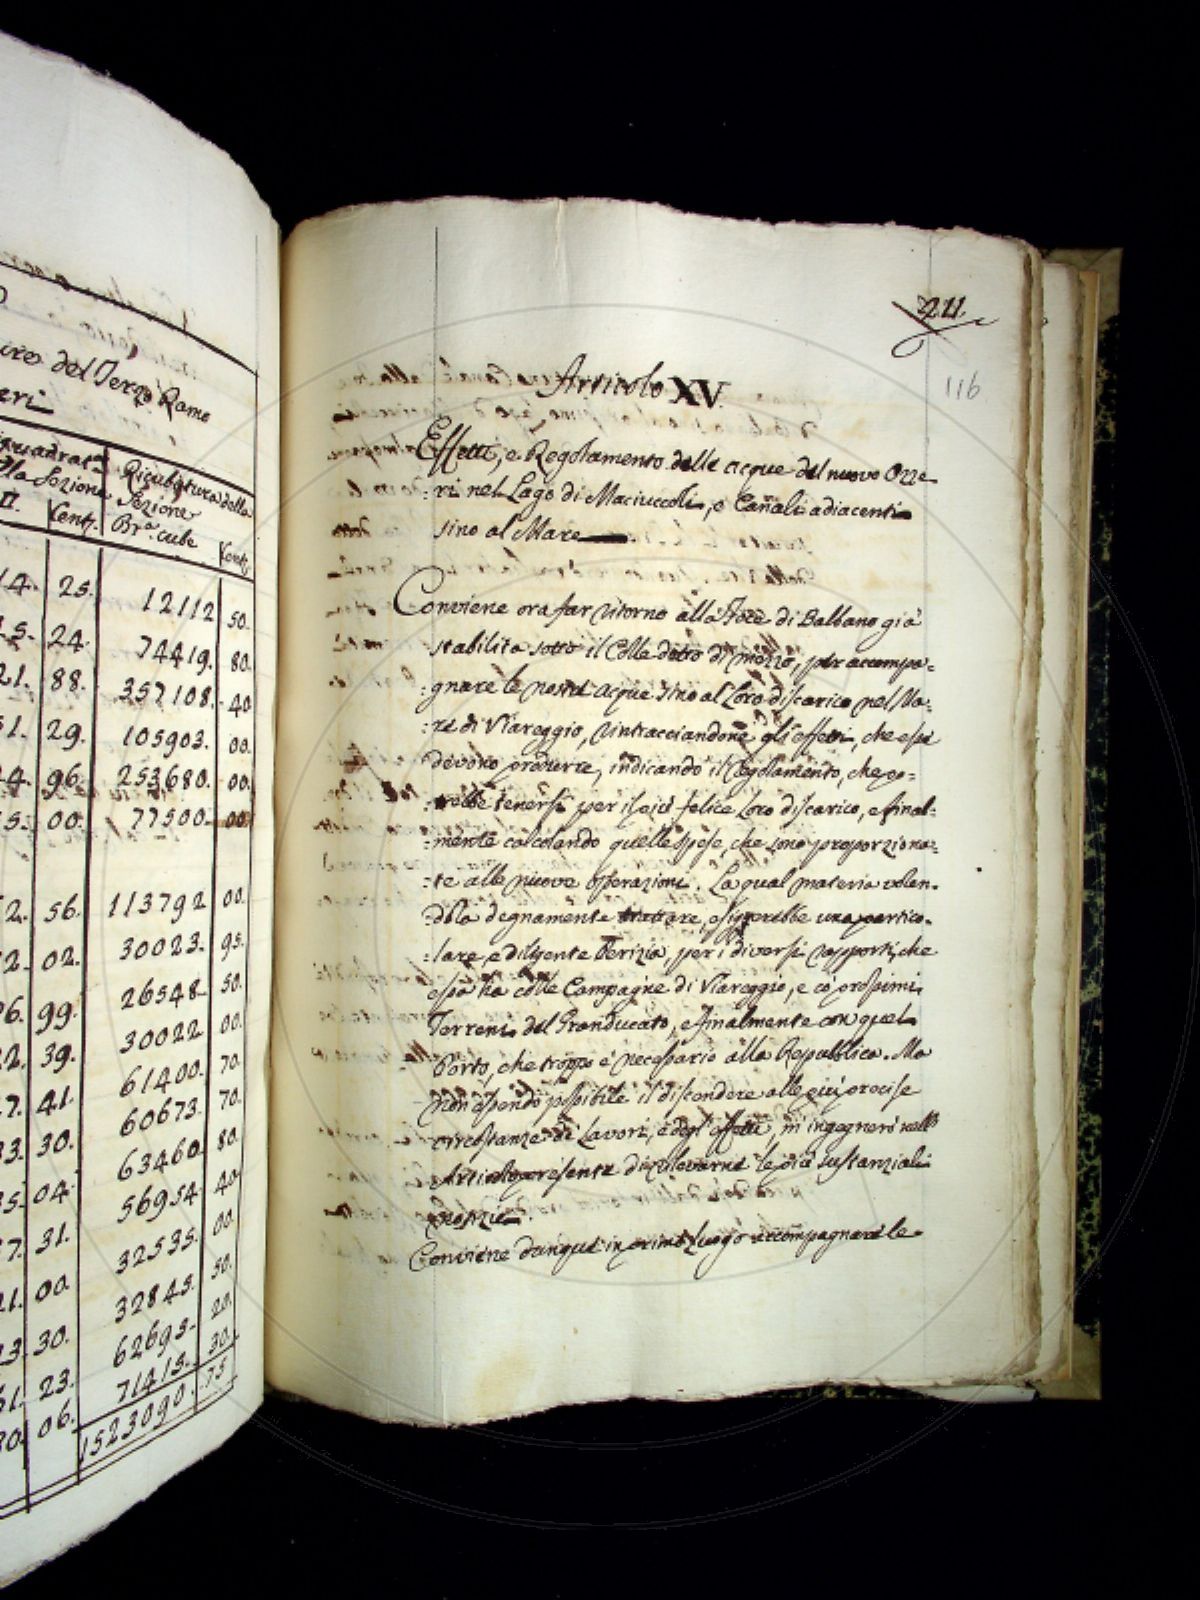 ure del Terzo Ramo
eri
quadrat
Ricubatura della
lla Sezione
Sezione
II.
Centi.
Br.a cube
Centi.
14. 25. 12112 50.
15. 24. 74419. 80.
21. 88. 357108. 40
51. 29. 105903. 00.
24. 96. 253680. 00.
5. 00. 77500. 00
2. 56. 113792 00.
2. 02. 30023. 95.
26. 99. 26548 50.
22. 39. 30022 00.
7. 41. 61400. 70
33. 30. 60673. 70.
35. 04. 63460 80.
7. 31. 56954 40
21. 00. 32535. 00.
3. 30. 32845. 50.
51. 23. 62695. 20.
30. 06. 71415. 30.
1523090. 75
211.
116
Articolo XV.
Effetti, e Regolamento delle acque del nuovo Ozze
:ri nel Lago di Maciuccoli, e Canali adiacenti
sino al Mare
Conviene ora far ritorno alla Foce di Balbano già
stabilita sotto il Colle detto di mezzo, per accompa=
:gnare le nostre acque sino al Loro discarico nel Ma:
:re di Viareggio, rintracciandone gli effetti, che esse
devono produrre, indicando il Regolamento, che po=
:trebbe tenersi per il più felice Loro discarico, e final=
:mente calcolando quelle spese, che sono proporziona=
:te alle nuove operazioni. La qual materia volen=
:dola degnamente trattare, esiggerebbe una partico=
:lare, e diligente Perizia, per i diversi rapporti, che
essa ha colle Campagne di Viareggio, e co' prossimi
Terreni del Granducato, e finalmente con quel
Porto, che troppo è necessario alla Repubblica. Ma
non essendo possibile il discendere alle più precise
circostanze de' Lavori, e degl' effetti, m' ingegnerò nell'
Articolo presente di rilevarne le più sustanziali
notizie.
Conviene dunque in primo Luogo accompagnare le